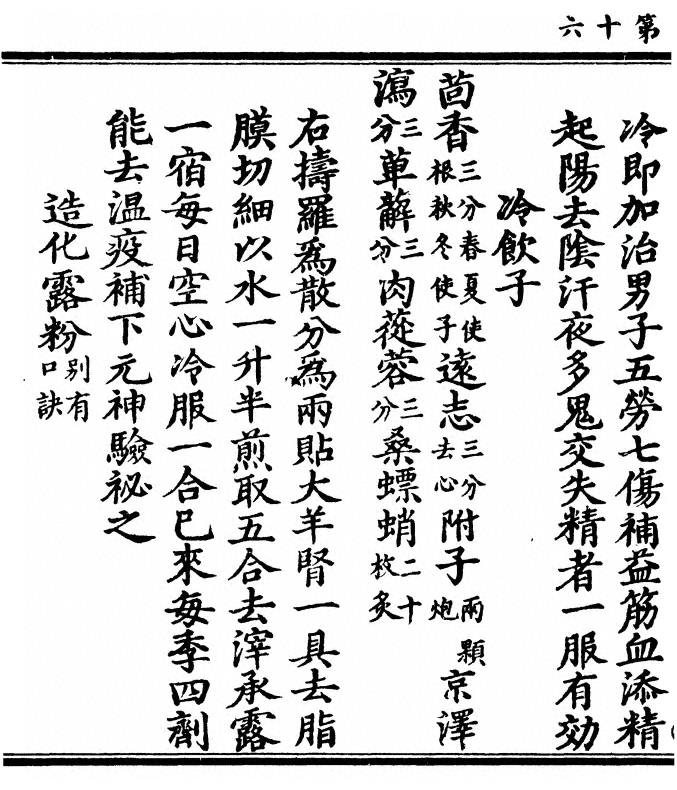 第十六
冷即加治男子五勞七傷補益筋血添精
起陽去陰汗夜多鬼交失精者一服有効
冷飲子
茴香三分春夏使根秋冬使子遠志三分去心附子兩顆炮京澤
瀉三分萆薢三分肉蓯蓉三分桑螵蛸二十枚炙
右擣羅爲散分爲兩貼大羊腎一具去脂
膜切細以水一升半煎取五合去滓承露
一宿每日空心冷服一合巳來每季四劑
能去温疫補下元神驗祕之
造化露粉別有口訣